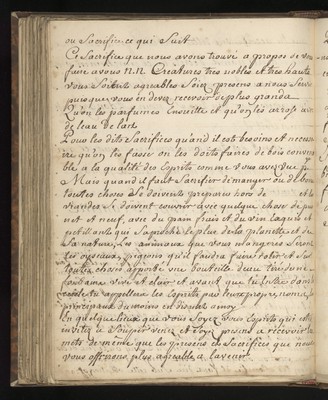 ou Sacrifice ce qui Suit
Ce Sacrifice que nous avons trouvé a propos de vous
faire a vous N.N. Creatures tres nobles et tres hautes
vous Soit agreables Soiez presens a nous Sert
puisque vous en devez recevoir de plus grands
Puis on les parfumes Ensuitte et qu'on les arrose avec
de l'eau De l'art
Tous les dits Sacrifices quand il est besoins et necessai
re qu'on les fasse on les doit faire de bois convena
ble a la qualité des Esprits comme vous avez veu
Mais quand il faut Sacrifier a manger ou de boire
toutes choses Se doivents preparer hors de et les
viandes Se doivent couvrir avec quelque chose de pro
net et neuf, avec du pain frais et du vin Laquis et
petit ants que S'aproche le plus de la planette et de
Sa nature, les animaux que vous mangerez Seront
les oyseaux, pigeons qu'il faudra faire rotir et Sur
toutes choses apporté une bouteille d'eau tiré d'une
fontaine vive et clair et avant que tu entre dans
cercle tu appellera les Esprits par leurs propre nom ou
principaux du moins en disant ainsy
En quelque Lieux que vous Soyez vous Esprits qui este
invitez a Souper venez et Soyez presens a recevoir le
mets de même que les presens et Sacrifices que nous
vous offrirons, plus agreables a l'avenir